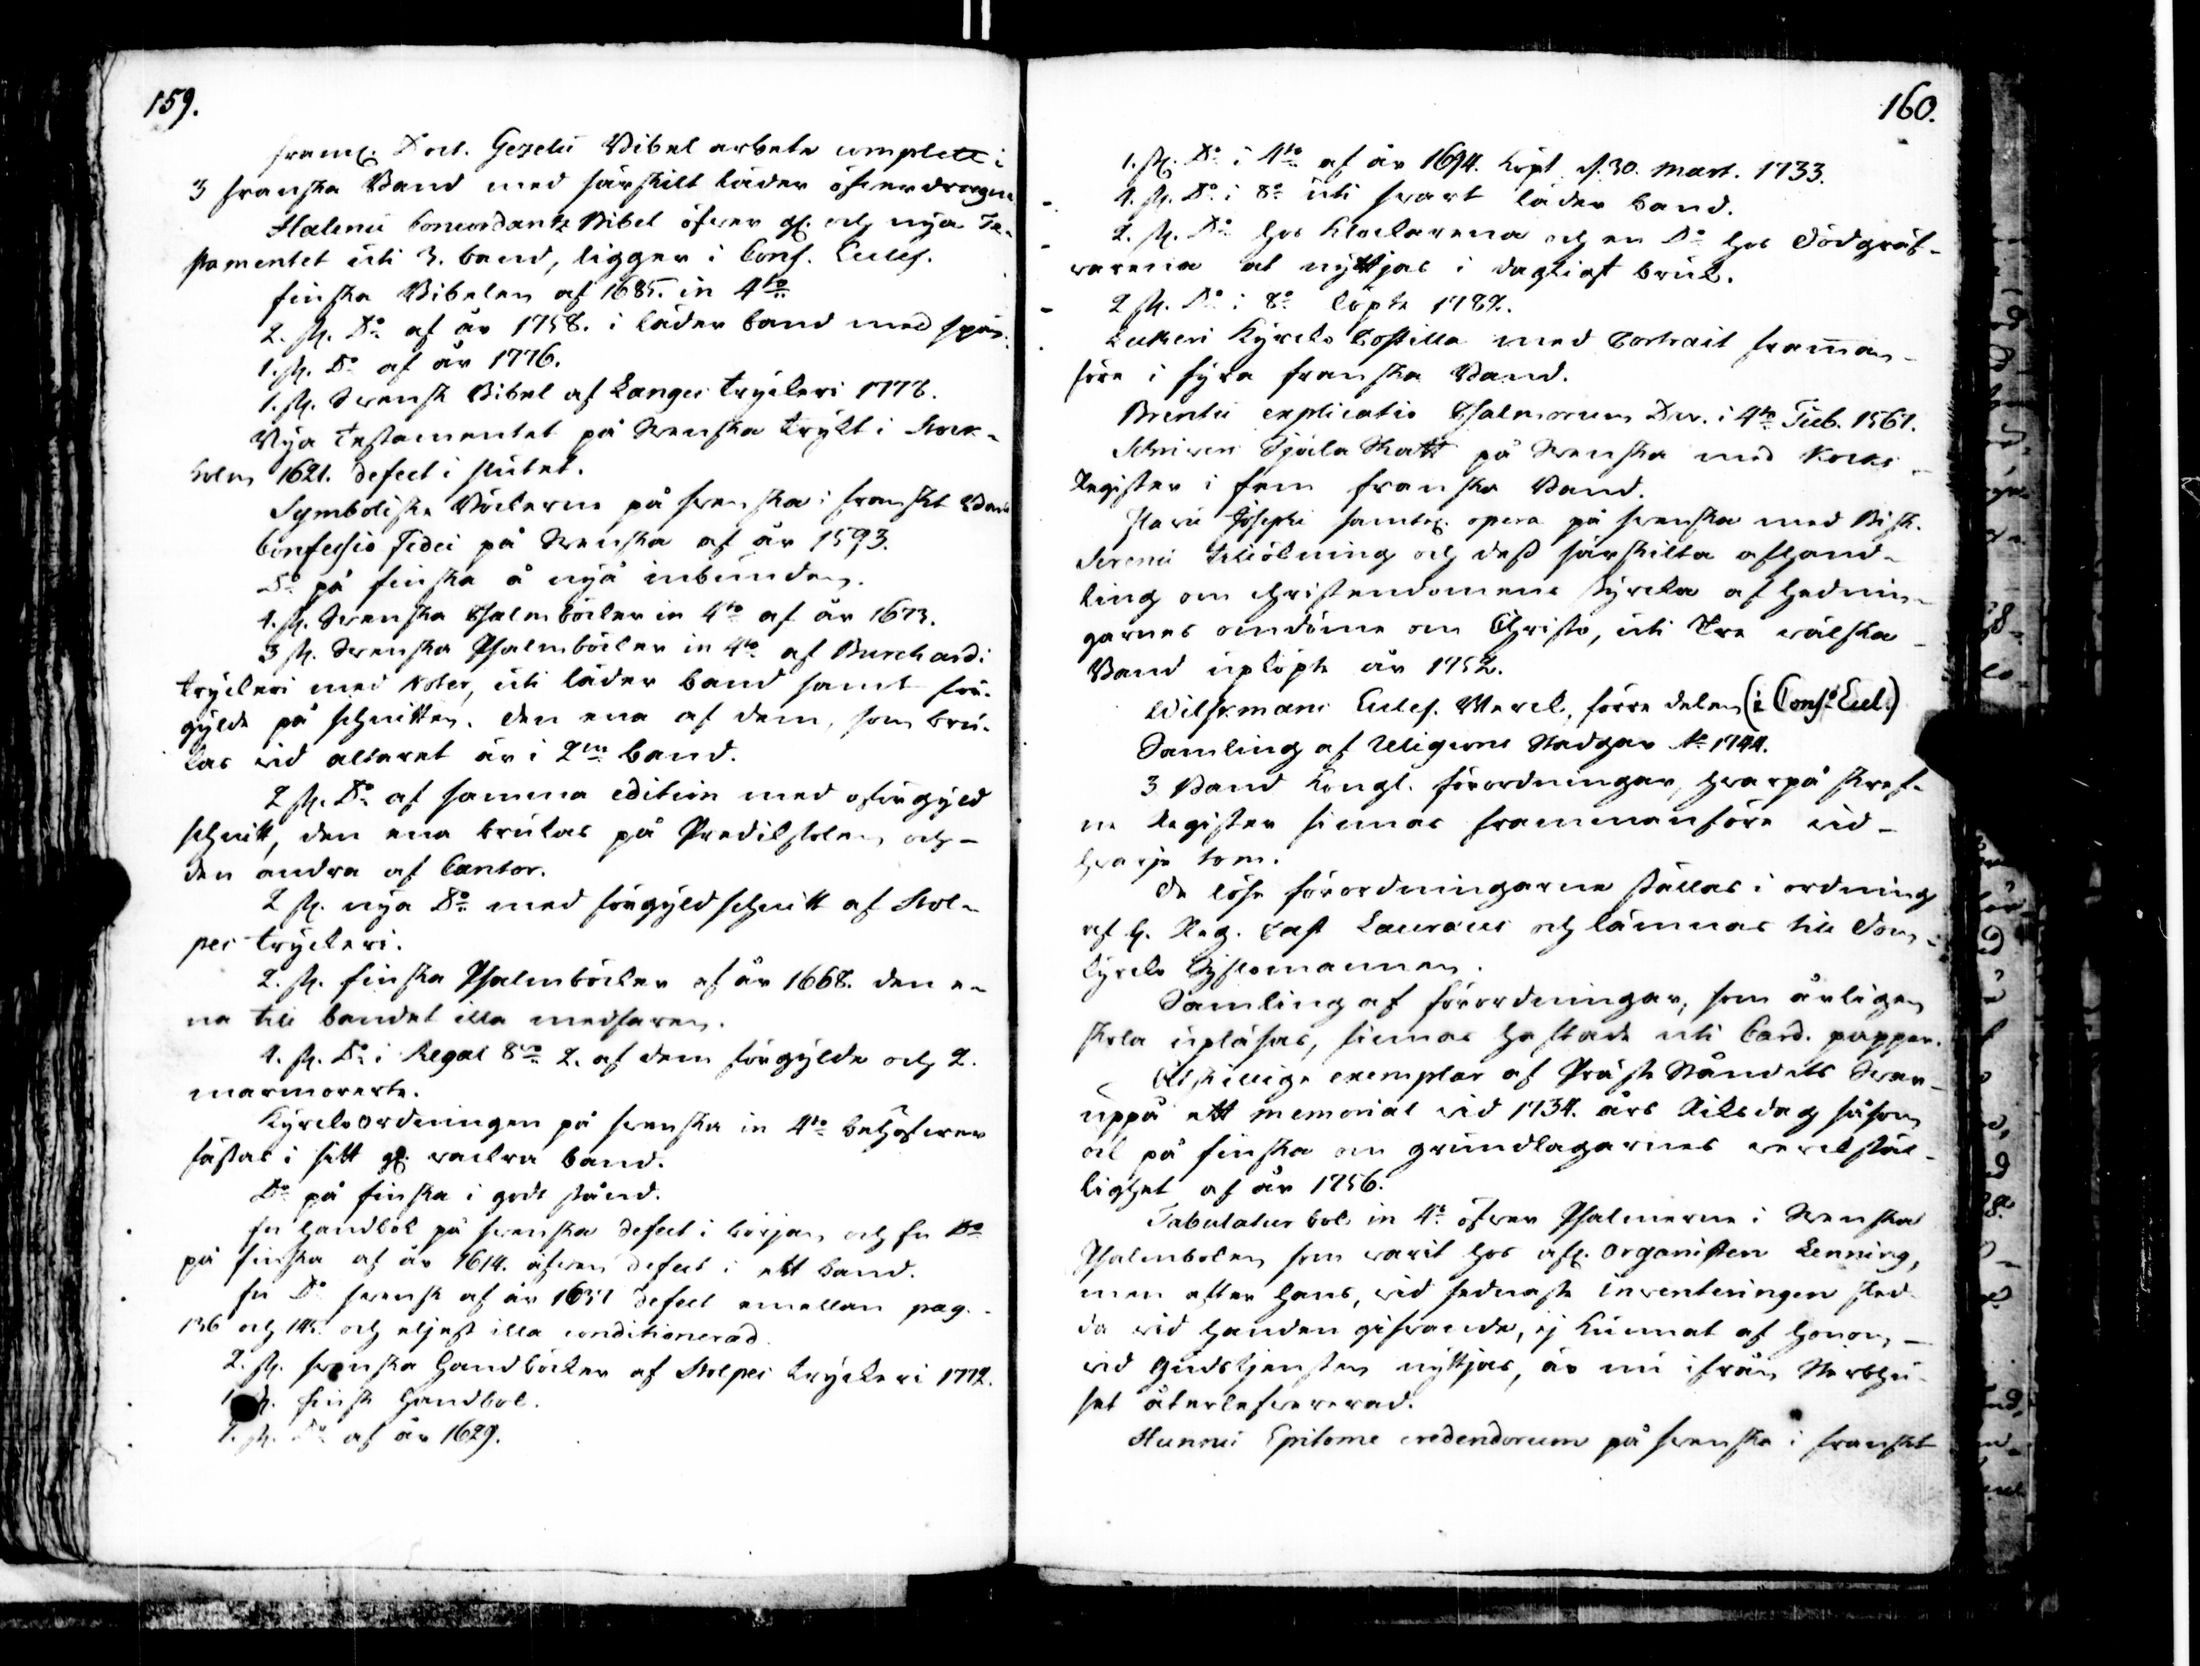 159.
framl. Doct. Gezelii Bibel arbete complett i
3 franska Band med särskilt läder öfverdragne
Halenii Concordantz Bibel öfver gl. och nya Te-
stamentet uti 3. band, ligger i Cons. Eccles.
finska Bibelen af 1685. in 4to
2. st. Do af år 1758. i läder band med spän.
1. st. Do af år 1776.
1. st. Svensk Bibel af Langes tryckeri 1778.
Nya Testamentet på Svenska tryckt i Stock-
holm 1621. defect i slutet.
Symboliska Böckerne på svenska i franskt Band
Confessio Fidei på Svenska af år 1593.
Do på finska å nyå inbunden.
4. st. Svenska Psalmböcker in 4to af år 1673.
3 st. Svenska Psalmböcker in 4to af Burchardi
tryckeri med Noter, uti läder band samt för-
gylde på schnitten. den ena af dem, som bru-
kas vid altaret är i 2ne band.
2 st. Do af samma edition med oförgyld
schnitt, den ena brukas på Predikstolen och
den andra af Cantor.
2 st. nya Do med förgyld schnitt af Stol-
pes tryckeri.
2. st. finska Psalmböcker af år 1668. den e-
na till bandet illa medfaren.
4. st. Do i Regal 8vo 2. af dem förgylde och 2.
marmorerte.
Kyrckoordningen på svenska in 4to behöfver
fästas i sitt gl. vackra band.
Do på finska i godt stånd.
En Handbok på svenska defect i början och En Do
på finska af år 1614. äfven defect i ett band.
En Do svensk af år 1631 defect emellan pag.
136 och 145. och eljest illa conditionerad.
2. st. svenska Handböcker af Stolpes tryckeri 1772.
1 st. finsk Handbok.
1. st. Do af år 1629.
160.
1. st. Do i 4to af år 1694. köpt d. 30. Mart. 1733.
4. st. Do i 8o uti svart läder band.
2. st. Do hos Klockarena och en Do hos Dödgräf-
varena at nyttjas i dagligt bruk.
2 st. Do i 8o köpte 1787.
Lutheri Kyrcko Postilla med Portrait framman-
före i fyra franska Band.
Brentii explicatio Psalmorum Dav. i 4to Tub. 1567.
Schriveri Själa Skatt på Svenska med
Register i fem franska Band.
Flavii Josephi samtl. opera på svenska med Bisk.
Serenii tillökning och dess särskilta afhand-
ling om christendomens styrcka af Hednin-
garnes omdöme om Christo, uti Tre wälska
Band upköpte år 1752.
Wilskmans Eccles. Werck, förre delen (i Cons. Eccl.)
Samling af Religions Stadgar Ao 1744.
3 Band Kongl. förordningar, hvarpå skref-
ne Register finnas frammanföre vid
hvarje tom.
De löse förordningarne ställas i ordning
af H. Reg. Past Lauræus och lämnas till Dom-
kyrcko Sysslomannen.
Samling af förordningar, som årligen
skola upläsas, finnas häftade uti Card. papper.
Åtskillige exemplar af Präste Ståndets Svar
uppå ett memorial vid 1734. års Riksdag såsom
ock på finska om grundlagarnes verckstäl-
lighet af år 1756.
Tabulatur bok in 4o öfver Psalmerne i Svenska
Psalmboken som varit hos afl. Organisten Lenning,
men efter hans, vid sednaste inventeringen sked-
da vid handen gifvande, ej kunnat af honom
vid Gudstjensten nyttjas, är nu ifrån Sterbhu-
set återlefvererad.
Hunnii Epitome credendorum på svenska i franskt